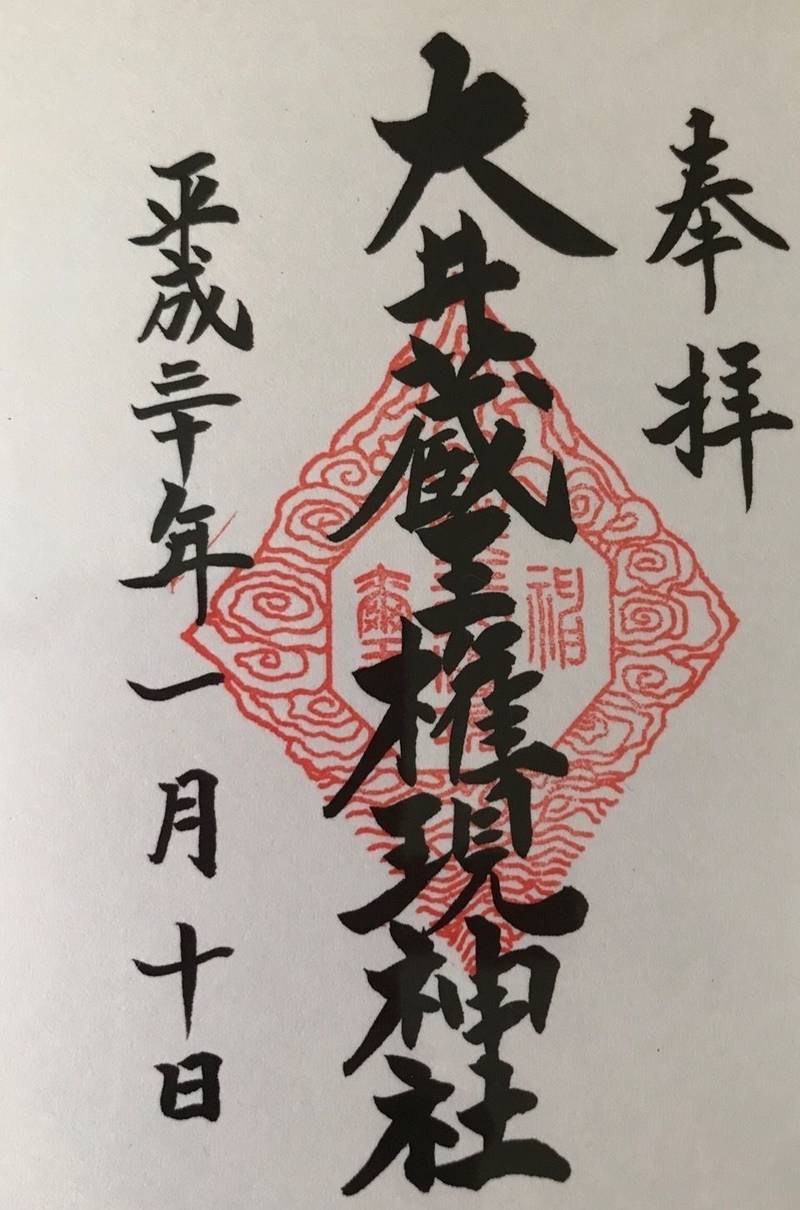 奉拝
大井蔵王権現神社
平成三十年一月十日